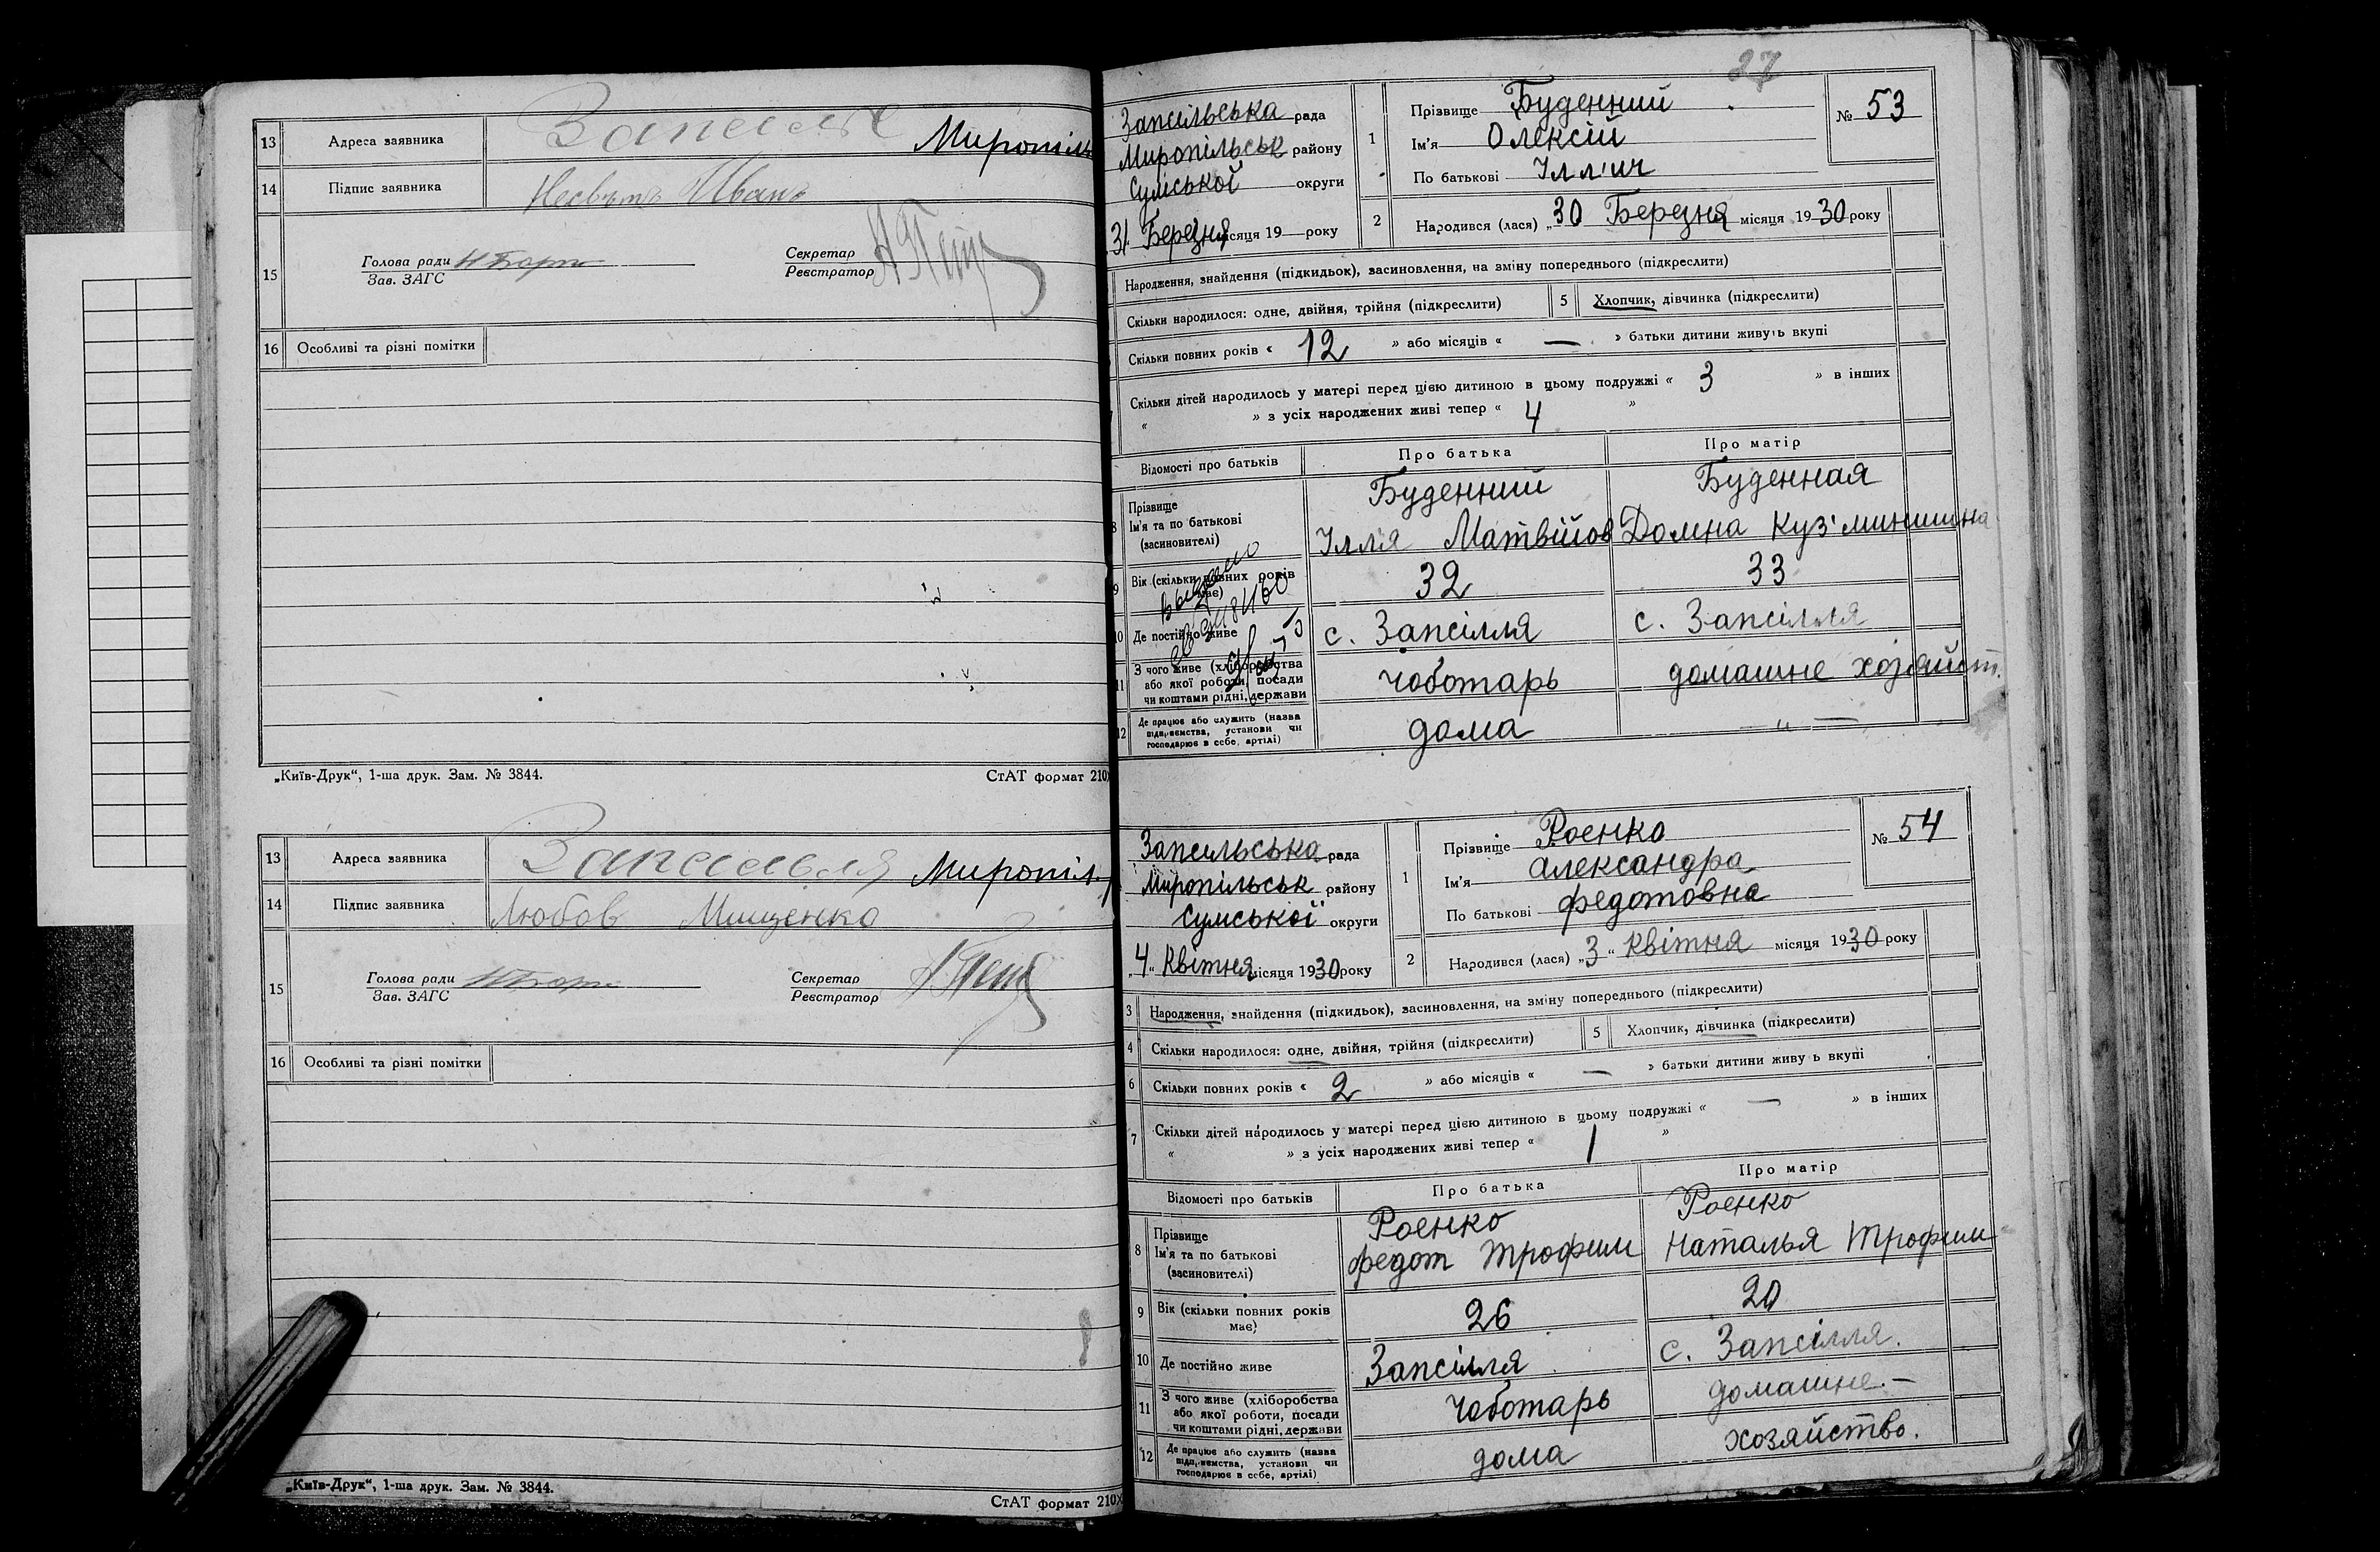 13 Адреса заявника Запсилье Миропіль
14 Підпис заявника Иванъ
15 Голова ради
Зав. ЗАГС
Секретар
Реєстратор
16 Особливі та різні помітки
„Київ-Друк“, 1-ша друк. Зам. № 3844.
СтАТ формат 210
13 Адреса заявника Запсилья Миропіл.
14 Підпис заявника Любов Мищенко
15 Голова ради
Зав. ЗАГС
Секретар
Реєстратор
16 Особливі та різні помітки
„Київ-Друк“, 1-ша друк. Зам. № 3844.
СтАТ формат 210
27
Запсільська рада
Миропільськ району
Сумської округи
31 Березня місяця 19 року
1 Прізвище Буденний
Ім'я Олексій
По батькові Ілл'ич
№ 53
2 Народився (лася) „30 Березня місяця 1930 року
Народження, знайдення (підкидьок), засиновлення, на зміну попереднього (підкреслити)
Скільки народилося: одне, двійня, трійня (підкреслити) 5 Хлопчик, дівчинка (підкреслити)
Скільки повних років « 12 » або місяців « — » батьки дитини живуть вкупі
Скільки дітей народилось у матері перед цією дитиною в цьому подружжі « 3 » в інших
« » з усіх народжених живі тепер « 4 »
Відомості про батьків Про батька Про матір
8 Прізвище Буденний Буденная
Ім'я та по батькові Ілля Матвійов Домна Куз'минишна
(засиновителі)
9 Вік (скільки повних років має) 32 33
10 Де постійно живе с. Запсілля с. Запсілля
11 З чого живе (хліборобства
або якої роботи, посади
чи коштами рідні, держави чоботарь домашне хозяйст.
12 Де працює або служить (назва
підприємства, установи чи
господарює в себе, артілі) дома — „ —
Запсильська рада
Миропільськ району
Сумської округи
„4“ Квітня місяця 1930 року
1 Прізвище Роенко
Ім'я Александра
По батькові Федотовна
№ 54
2 Народився (лася) „3“ Квітня місяця 1930 року
3 Народження, знайдення (підкидьок), засиновлення, на зміну попереднього (підкреслити)
4 Скільки народилося: одне, двійня, трійня (підкреслити) 5 Хлопчик, дівчинка (підкреслити)
6 Скільки повних років « 2 » або місяців « — » батьки дитини живу ь вкупі
7 Скільки дітей народилось у матері перед цією дитиною в цьому подружжі « — » в інших
« » з усіх народжених живі тепер « 1 »
Відомості про батьків Про батька Про матір
8 Прізвище Роенко Роенко
Ім'я та по батькові Федот Трофим Наталья Трофим
(засиновителі)
9 Вік (скільки повних років має) 26 20
10 Де постійно живе Запсілля с. Запсілля.
11 З чого живе (хліборобства
або якої роботи, посади
чи коштами рідні, держави Чоботарь домашне.—
12 Де працює або служить (назва
підприємства, установи чи
господарює в себе, артілі) дома хозяйство.